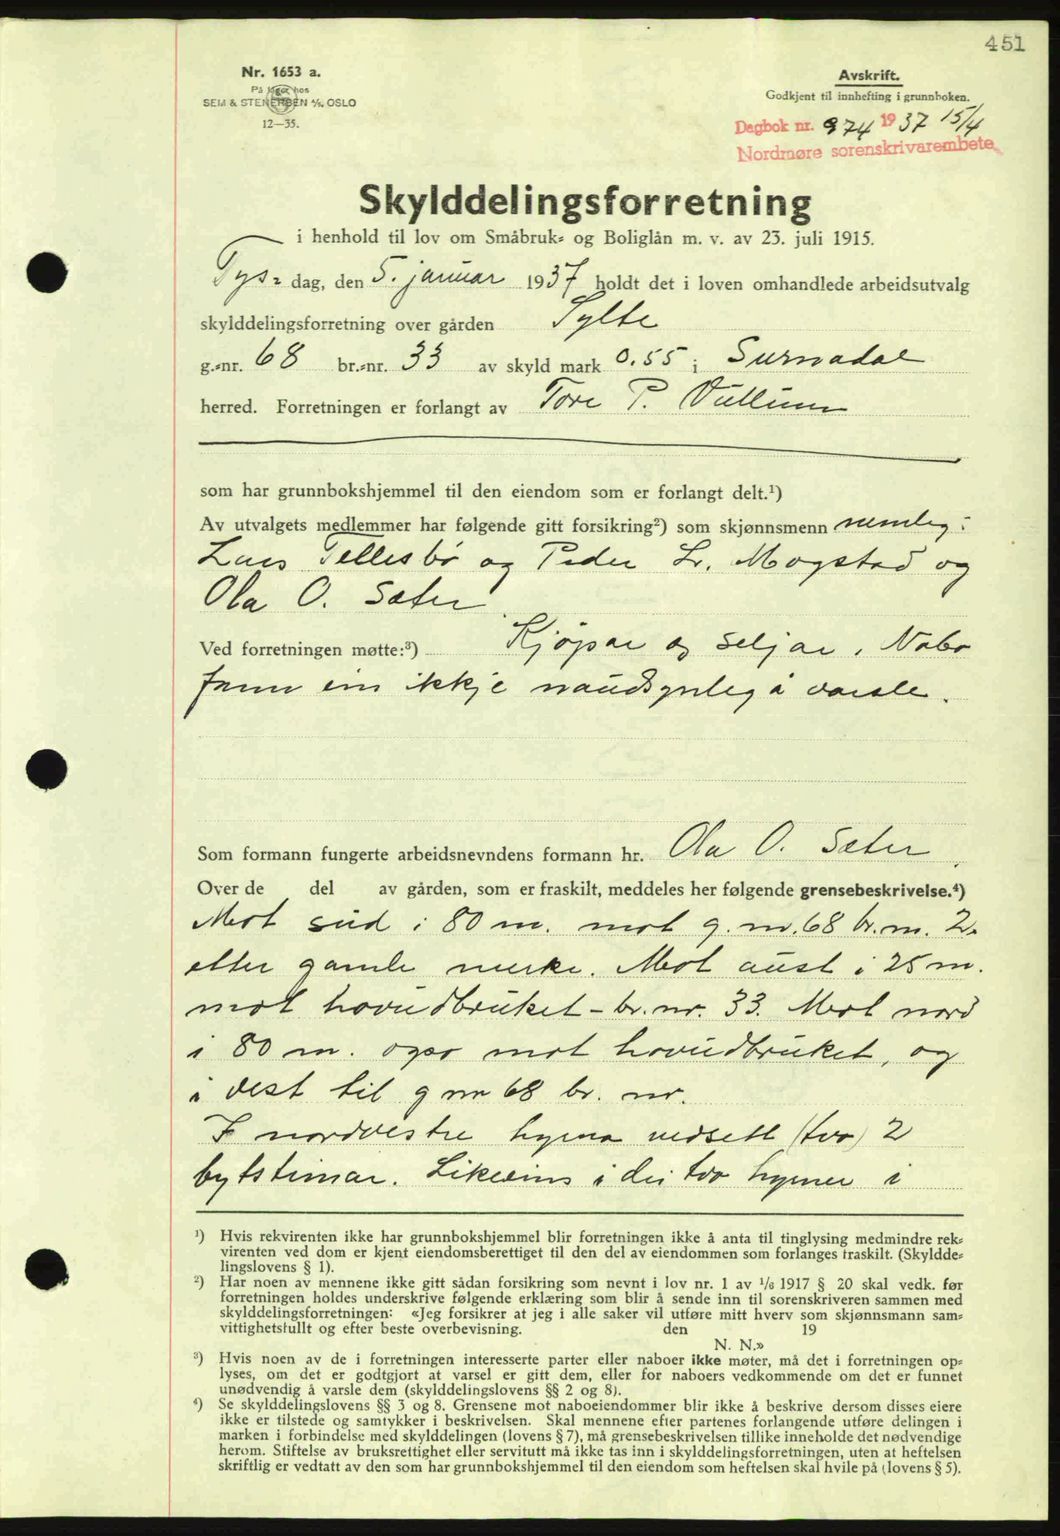 451
Nr. 1653 a.
På lager hos
SEM & STENERSEN A/S, OSLO
12—35.
Avskrift.
Godkjent til innhefting i grunnboken.
Dagbok nr. 974 1937 15/4
Nordmøre sorenskrivarembete
Skylddelingsforretning
i henhold til lov om Småbruk= og Boliglån m. v. av 23. juli 1915.
Tys= dag, den 5. januar 1937 holdt det i loven omhandlede arbeidsutvalg
skylddelingsforretning over gården Sylte
g.=nr. 68 br.=nr. 33 av skyld mark 0.55 i Surnadal
herred. Forretningen er forlangt av Tore P. Vullum
som har grunnbokshjemmel til den eiendom som er forlangt delt.¹)
Av utvalgets medlemmer har følgende gitt forsikring²) som skjønnsmenn nemleg:
Lars Tellesbö og Peder Lr. Mogstad og
Ola O. Sæter
Ved forretningen møtte:³) Kjöpar og seljar. Nabo
fann ein ikkje naudsynleg å varsle.
Som formann fungerte arbeidsnevndens formann hr. Ola O. Sæter
Over de del av gården, som er fraskilt, meddeles her følgende grensebeskrivelse.⁴)
Mot sud i 80 m. mot g. nr. 68 br. nr. 2.
etter gamle merke. Mot aust i 25 m.
mot hovudbruket - br. nr. 33. Mot nord
i 80 m. ogso mot hovudbruket, og
i vest til g nr 68 br. nr.
I nordvestre hyrna nedsett (tvo) 2
bytsteinar. Likeeins i dei tvo hyrner i
¹) Hvis rekvirenten ikke har grunnbokshjemmel blir forretningen ikke å anta til tinglysing medmindre rek=
virenten ved dom er kjent eiendomsberettiget til den del av eiendommen som forlanges fraskilt. (Skyldde=
lingslovens § 1).
²) Har noen av mennene ikke gitt sådan forsikring som nevnt i lov nr. 1 av 1/6 1917 § 20 skal vedk. før
forretningen holdes underskrive følgende erklæring som blir å sende inn til sorenskriveren sammen med
skylddelingsforretningen: «Jeg forsikrer at jeg i alle saker vil utføre mitt hverv som skjønnsmann sam=
vittighetsfullt og efter beste overbevisning. den 19
N. N.»
³) Hvis noen av de i forretningen interesserte parter eller naboer ikke møter, må det i forretningen op=
lyses, om det er godtgjort at varsel er gitt dem, eller for naboers vedkommende om det er funnet
unødvendig å varsle dem (skylddelingslovens §§ 2 og 8).
⁴) Se skylddelingslovens §§ 3 og 8. Grensene mot naboeiendommer blir ikke å beskrive dersom disses eiere
ikke er tilstede og samtykker i beskrivelsen. Skal mennene efter partenes forlangende utføre delingen i
marken i forbindelse med skylddelingen (lovens § 7), må grensebeskrivelsen tillike inneholde det nødvendige
herom. Stiftelse av bruksrettighet eller servitutt må ikke tas inn i skylddelingsforretningen, uten at heftelsen
skriftlig er vedtatt av den som har grunnbokshjemmel til den eiendom som heftelsen skal hvile på (lovens § 5).